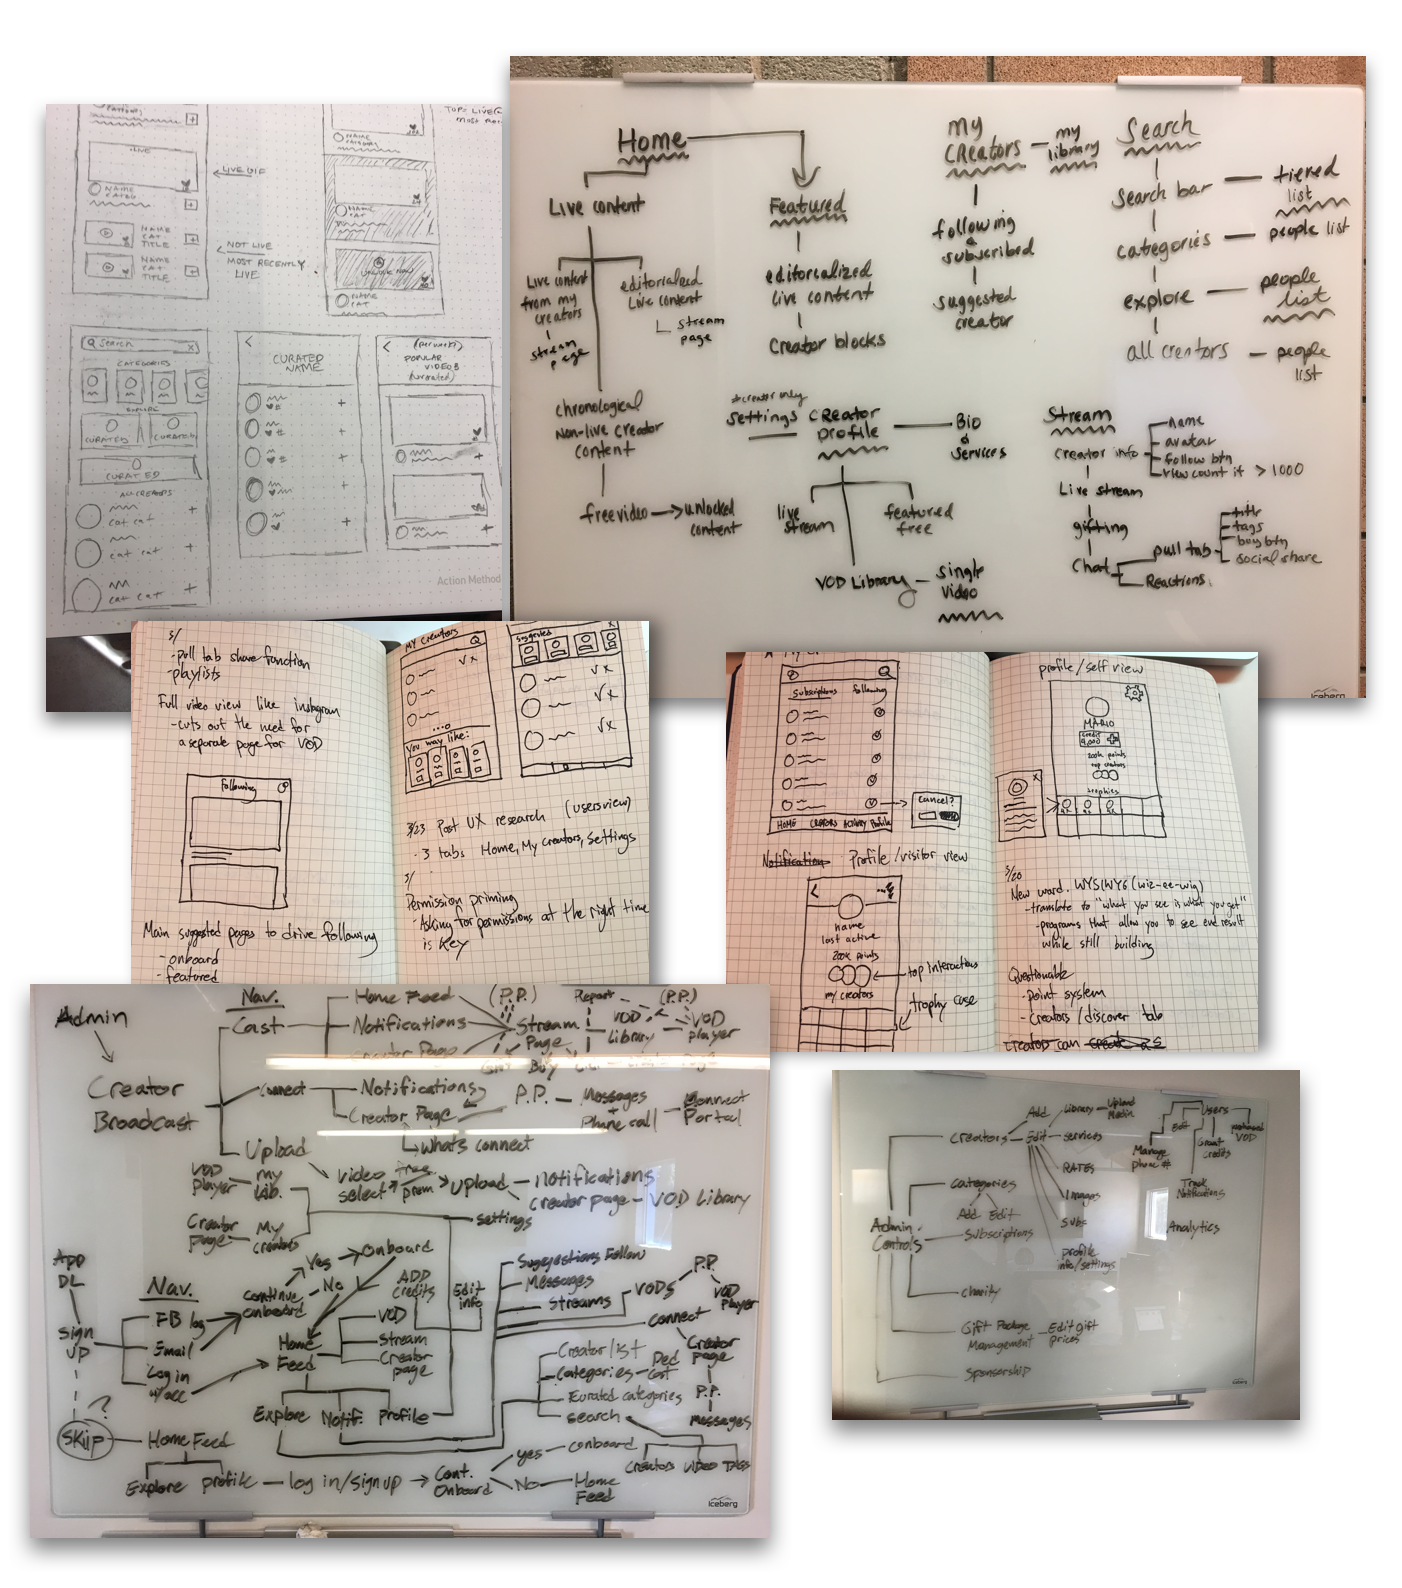 TOP = LIVE
MOST
LIVE
NAME
CATEG
LIVE GIF
NAME
CAT.
TITLE
NOT LIVE
MOST RECENTLY
LIVE
NAME
CAT.
TITLE
NAME
CATEGORY
NAME
CAT
NAME
CAT
Search X
CATEGORIES
EXPLORE
CURATED
CURATED
CURATED
ALL CREATORS
cat cat
cat cat
cat cat
CURATED
NAME
POPULAR
VIDEOS
(curated)
Action Method
Home
Live content
Live content
from my
creators
stream
page
editorialized
Live content
stream
page
chronological
Non-live creator
content
free video → unlocked
content
Featured
editorialized
live content
Creator blocks
My
Creators
my
library
following
&
subscribed
suggested
creator
Search
Search bar — tiered
list
categories — people list
explore — people
list
all creators — people
list
*creator only
settings
Creator
profile
Bio
&
Services
live
stream
featured
free
VOD Library — single
video
Stream
creator info
name
avatar
follow btn
view count if > 1000
Live stream
gifting
Chat
pull tab
title
tags
buy btn
social share
Reactions
iceberg
5/
-pull tab share function
-playlists
Full video view like instagram
-cuts out the need for
a separate page for VOD
Following
Main suggested pages to drive following
-onboard
-featured
My Creators
You may like:
Suggested
3/23 Post UX research (users view)
-3 tabs Home, My creators, Settings
5/
Permission priming
-Asking for permissions at the right time
is Key
Subscriptions Following
HOME CREATORS ACTIVITY Profile
cancel?
Notification Profile/visitor view
name
last active
200k points
my creators
top interactions
trophy case
profile/self view
MARIO
credit
9,000 +
200k points
top creators
trophies
5/20
New word. WYSIWYG (wiz-ee-wig)
-translate to "what you see is what you get"
-programs that allow you to see end result
while still building
Questionable
-point system
-Creators/discover tab
Creator can create as
Admin
Creator
Broadcast
Nav.
Cast
Home Feed
Notifications
Creator Page
(P.P.)
Stream
Page
Buy
Report
VOD
Library
(P.P.)
VOD
player
Connect
Notifications
Creator Page
Whats connect
P.P. — Messages
+
Phone call
Connect
Portal
Upload
video
select
free
prem
upload
notifications
creator page — VOD Library
VOD
player
My
Lib.
Creator
Page
My
creators
settings
App
DL
Sign
UP
Nav.
FB log
Email
Log in
w/acc
continue
onboard
Yes
Onboard
No
Home
Feed
VOD
Stream
Creator
page
ADD
Credits
Edit
info
Explore Notif. Profile
Suggestions Follow
Messages
Streams
VODs
P.P.
VOD
Player
connect
Creator
Page
P.P.
Messages
Creator list
categories
Curated categories
search
Creators Video Tags
?
Skip
Home Feed
Explore profile — log in/sign up → Cont.
Onboard
yes — onboard
No — Home
Feed
iceberg
Admin
Controls
Creators
Add
Edit
Library — Upload
Media
services
RATES
Images
Subs
profile
info/settings
categories
Add Edit
Subscriptions
charity
Gift Package
Management
Edit gift
prices
Sponsorship
Users
Edit
Manage
phone #
Grant
credits
VOD
Track
Notifications
Analytics
iceberg